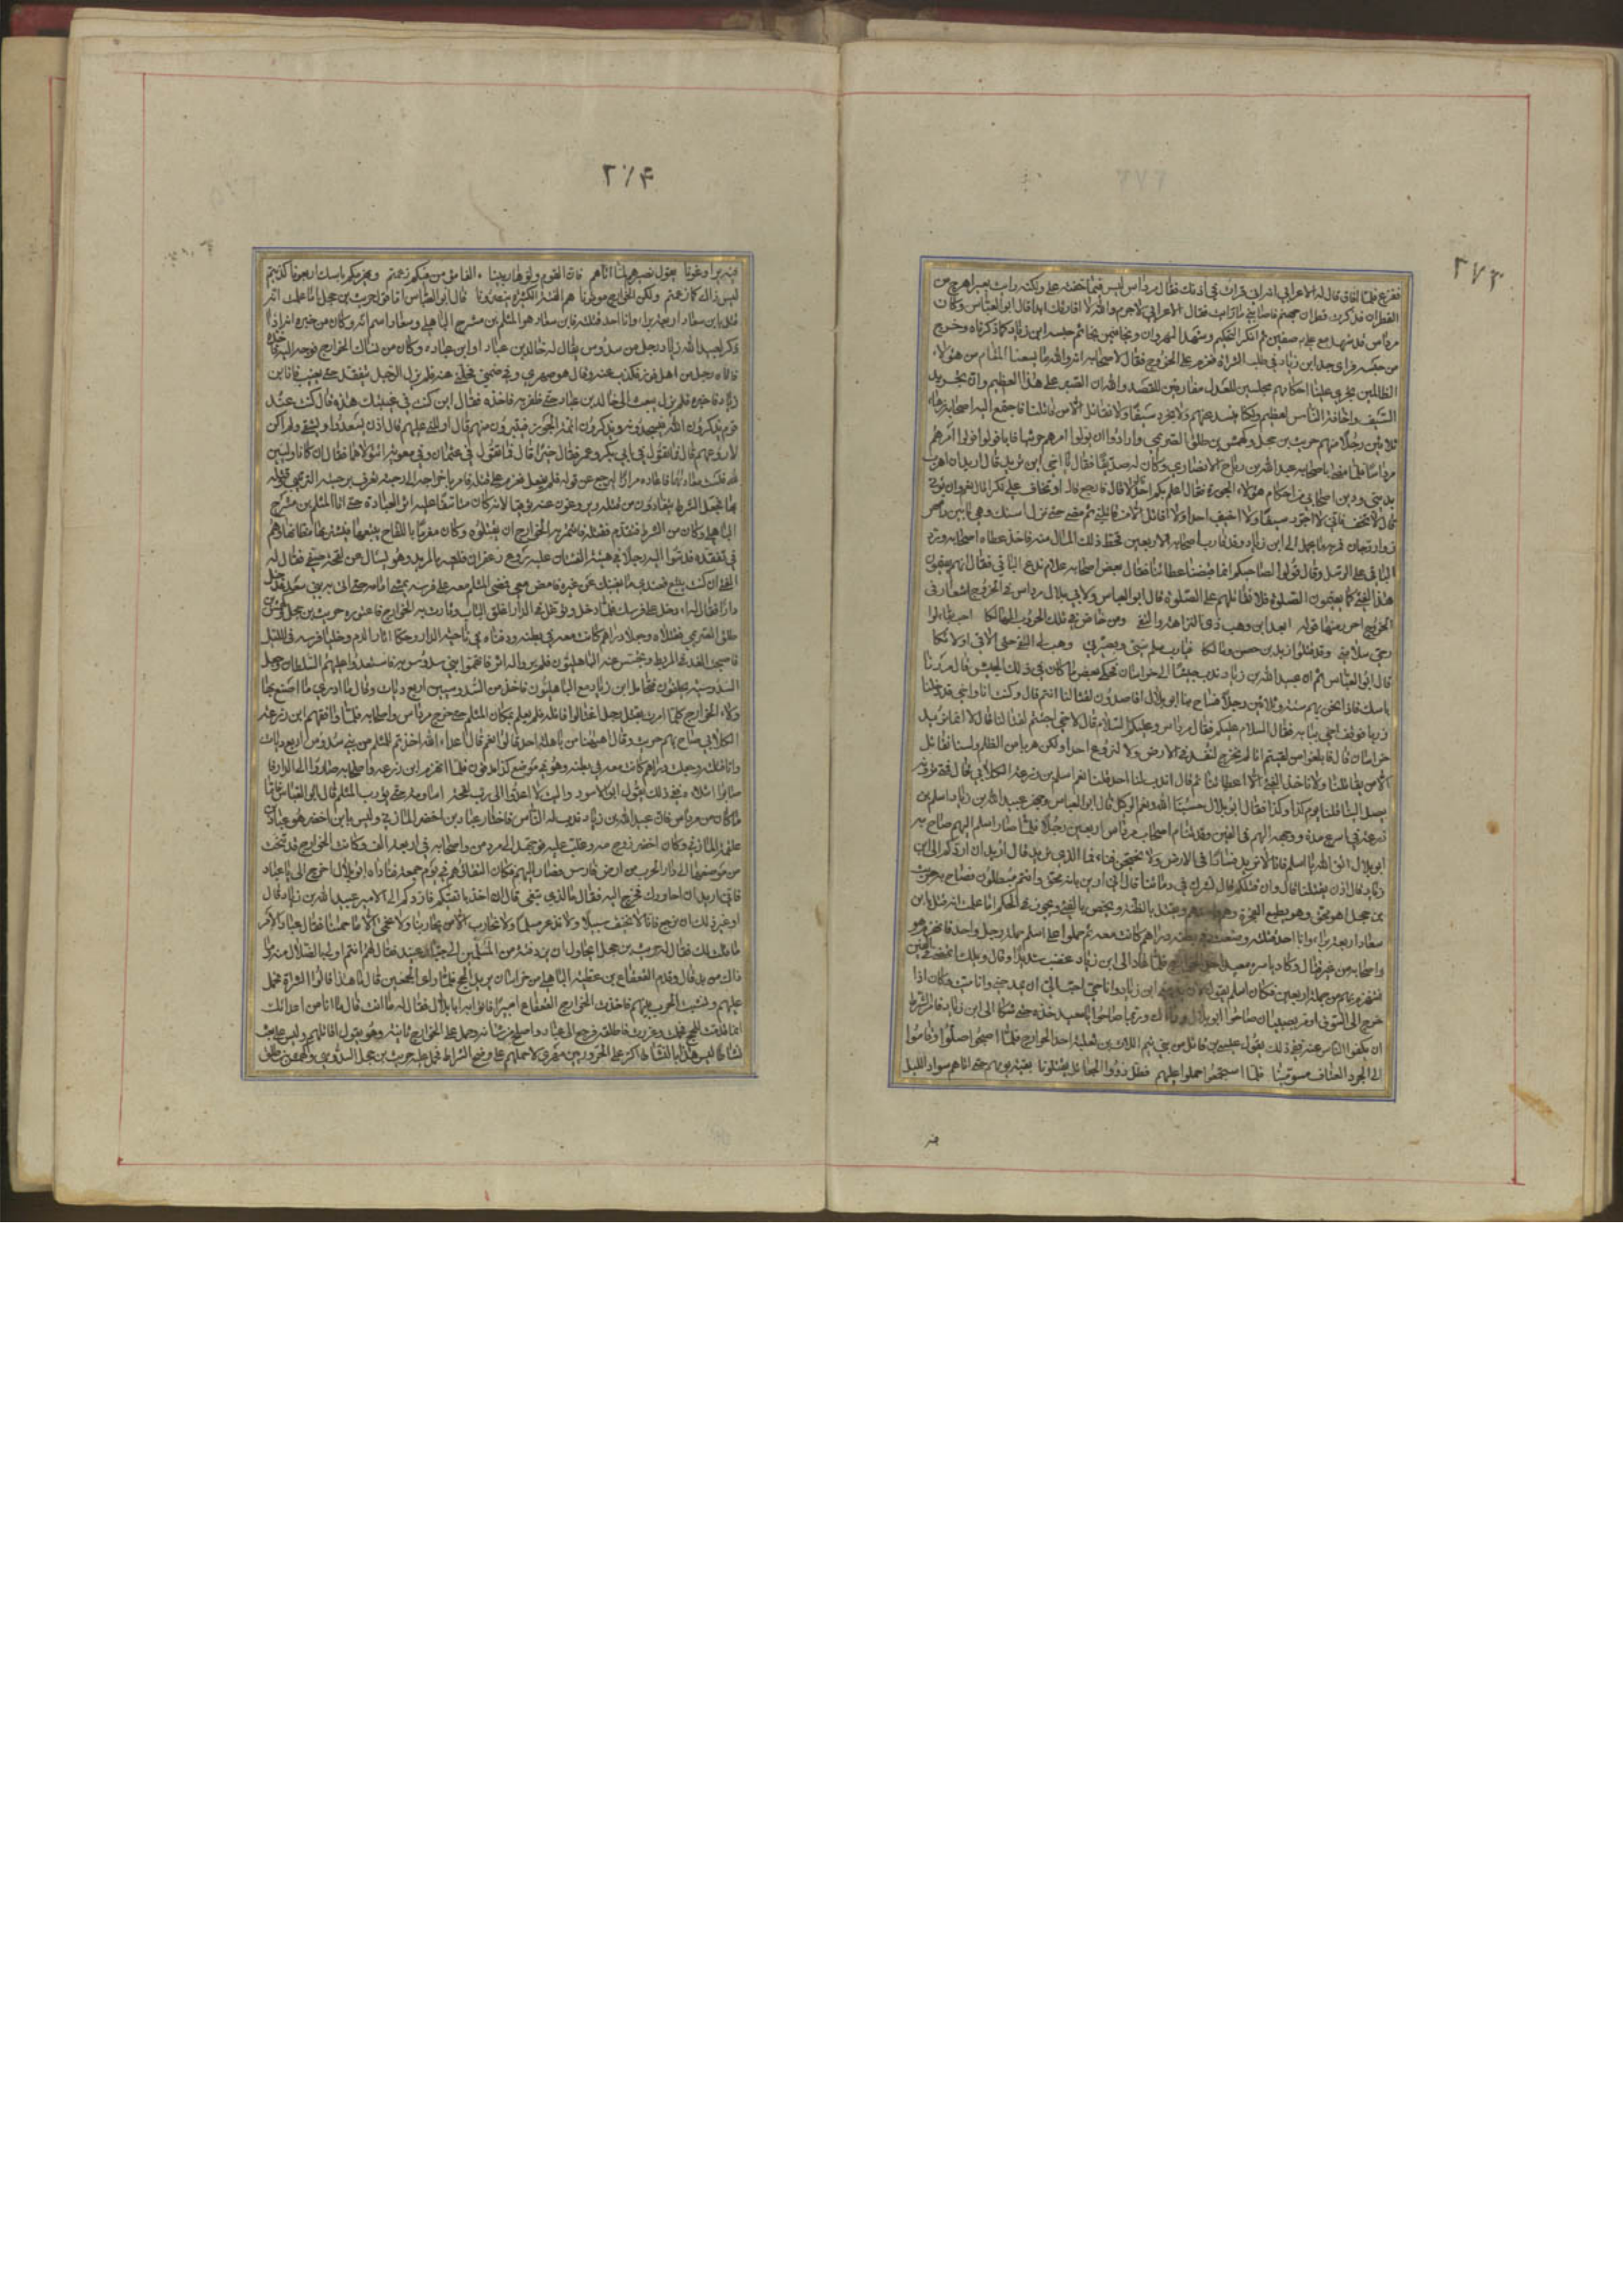 ٢٧٣
ففزع فلما افاق قال له الاعرابي اني قرات في اذنك فقال مرداس ليس فيما خفته علي ولكنه رايت بعيرا هرج من
القطران فذكرت قطران جهنم فاصابني ما رايت فقال الاعرابي لا جرم والله لا افارقك ابدا قال ابو العباس وكان
مرداس قد شهد مع علي صفين ثم انكر التحكيم وشهد النهروان ونجا فيمن نجا ثم حبسه ابن زياد كما ذكرناه وخرج
من حبسه فراى جد ابن زياد في طلب الشراة فعزم على الخروج فقال لاصحابه انه والله ما يسعنا المقام من هؤلاء
الظالمين تجري علينا احكامهم مجانبين للعدل مفارقين للقصد والله ان الصبر على هذا العظيم وان تجريد
السيف واخافة الناس لعظيم ولكنا لا نبتديهم ولا نجرد سيفا ولا نقاتل الا من قاتلنا فاجتمع اليه اصحابه زهاء
ثلاثين رجلا منهم حريث بن حجل وكهمس بن طلق الصريمي وارادوا ان يولوا امرهم حريثا فابى فولوا امرهم
مرداسا فلما مضى باصحابه لقيه عبد الله بن رباح الانصاري وكان له صديقا فقال يا اخي اين تريد قال اريد ان اهرب
بديني ودين اصحابي من احكام هؤلاء الجورة فقال اعلم بكم احد قال لا قال فارجع قال او تخاف علي نكرا قال نعم وان يؤتى
قال لا تخف فاني لا اجرد سيفا ولا اخيف احدا ولا اقاتل الا من قاتلني ثم مضى حتى نزل اسك وهي ما بين رامهرمز
وارجان فمر به مال يحمل الى ابن زياد وقد قارب اصحابه الاربعين فحط ذلك المال منه فاخذ عطاه واعطيات اصحابه ورد
الباقي على الرسل وقال قولوا لصاحبكم انما قبضنا اعطياتنا فقال بعض اصحابه علام ندع الباقي فقال انهم يقيمون
هذا الفيء كما يقيمون الصلوة فلا نقاتلهم على الصلوة قال ابو العباس ولابي بلال مرداس في الخروج اشعار في
الخروج
ابعد ابن وهب ذي النزاهة والتقى ومن خاض في تلك الحروب المهالكا احب بقاء او
ارجي سلامة وقد قتلوا زيد بن حصن ومالكا فيا رب سلم نيتي وبصيرتي وهب لي التقى حتى الاقي اولائكا
قال ابو العباس ثم ان عبيد الله بن زياد ندب جيشا الى خراسان فحكى بعض من كان في ذلك الجيش قال مررنا
باسك فاذا نحن بهم ستة وثلاثين رجلا فصاح بنا ابو بلال اقاصدون لقتالنا انتم قال وكنت انا واخي قد دخلنا
زربا فوقف اخي ببابه فقال السلام عليكم فقال مرداس وعليكم السلام قال لاخي اجئتم لقتالنا قال لا انما نريد
خراسان قال فابلغوا من لقيتم انا لم نخرج لنفسد في الارض ولا لنروع احدا ولكن هربا من الظلم ولسنا نقاتل
الا من يقاتلنا ولا ناخذ من الفيء الا اعطياتنا ثم قال اندب لنا احد قلنا نعم اسلم بن زرعة الكلابي قال فمتى ترونه
يصل الينا قلنا يوم كذا وكذا فقال ابو بلال حسبنا الله ونعم الوكيل قال ابو العباس وجهز عبيد الله بن زياد اسلم بن
زرعة في اسرع مدة ووجهه اليهم في الفين وقد تتام اصحاب مرداس اربعين رجلا فلما صار اسلم اليهم صاح به
ابو بلال اتق الله يا اسلم فانا لا نريد فسادا في الارض ولا نحتجن فيا فما الذي تريد قال اريد ان اردكم الى ابن
زياد قال اذن يقتلنا قال وان قتلكم قال تشرك في دمائنا قال اني ادين بانه محق وانتم مبطلون فصاح به حريث
بن حجل اهو محق وهو يطيع الفجرة وهو احدهم ويقتل بالظنة ويخص بالفيء ويجور في الحكم اما علمت انه قتل بابن
سعاد اربعة براء وانا احد قتلته ولقد وضعت في بطنه دراهم كانت معه ثم حملوا على اسلم حملة رجل واحد فانهزم هو
واصحابه من غير قتال وكاد ياسره معبد احد الخوارج فلما عاد الى ابن زياد غضب عليه غضبا شديدا وقال ويلك اتمضي في الفين
فتنهزم بهم من جملة اربعين فكان اسلم يقول لان يذمني ابن زياد وانا حي احب الي من ان يمدحني وانا ميت فكان اذا
خرج الى السوق او مر بصبيان صاحوا ابو بلال وراءك وربما صاحوا يا معبد خذه حتى شكا الى ابن زياد فامر الشرط
ان يكفوا الناس عنه ففي ذلك يقول عيسى بن فاتك من بني تيم اللات بن ثعلبة احد الخوارج فلما اصبحوا صلوا وقاموا
الى الجرد العتاق مسومينا فلما استجمعوا حملوا عليهم فظل ذووا الجعائل يقتلونا بقية يومهم حتى اتاهم سواد الليل
فيه
٢٧٤
فيه يراوغونا يقول بصيرهم لما اتاهم فان القوم ولوا هاربينا االفا مؤمن منكم زعمتم ويهزمكم باسك اربعونا كذبتم
ليس ذاك كما زعمتم ولكن الخوارج مؤمنونا هم الفئة القليلة على الفئة الكثيرة ينصرونا قال ابو العباس اما قول حريث بن حجل اما علمت انه
قتل بابن سعاد اربعة براء وانا احد قتلته فابن سعاد هو المثلم بن مشرح الباهلي وسعاد اسم امه وكان من خبره انه
ذكر لعبيد الله بن زياد رجل من سدوس يقال له خالد بن عباد او ابن عبادة وكان من نساك الخوارج فوجه اليه فاخذه
فاتاه رجل من آل ثور فكذب عنه وقال هو صهري وفي ضمني فخلى عنه فلم يزل الرجل يتفقده حتى تغيب فاتى ابن
زياد فاخبره فلم يزل يبعث الى خالد بن عباد حتى ظفر به فاخذه فقال اين كنت في غيبتك هذه قال كنت عند
قوم يذكرون الله ويسبحونه ويذكرون ائمة الجور فيتبرؤن منهم قال ادللني عليهم قال اذن يسعدوا وتشقى ولم اكن
لاروعهم قال فما تقول في ابي بكر وعمر فقال خيرا قال فما تقول في عثمان وفي معوية اتتولاهما فقال ان كانا وليين
لله فلست معاديهما فاراده مرارا ليرجع عن قوله فلم يفعل فعزم على قتله فامر باخراجه الى رحبة تعرف برحبة الزينبي وقتله
بها فجعل الشرط يتفادون من قتله ويروغون عنه توقيا لانه كان متاسفا عليه اثر العبادة حتى اتى المثلم بن مشرح
الباهلي وكان من الشرط فتقدم فقتله فائتمر به الخوارج ان يقتلوه وكان مغرما باللقاح يتبعها فيشتريها من مظانها وهم
في تفقده فدسوا اليه رجلا في هيئة الفتيان عليه ردع زعفران فلقيه بالمربد وهو يسال عن لقحة صفي فقال له
الفتى ان كنت تبلغ فعندي ما يغنيك عن غيره فامض معي فمضى المثلم معه على فرسه يمشي امامه حتى اتى به بني سعد فدخل
دارا فقال له ادخل على فرسك فلما دخل وتوغل في الدار اغلق الباب وثارت به الخوارج فاعتوره حريث بن حجل وكهمس بن
طلق الصريمي فقتلاه وجعلا دراهم كانت معه في بطنه ودفناه في ناحية الدار وحكا اثار الدم وخليا فرسه في الليل
فاصيب الغد في المربد وتجسس عنه الباهليون فلم يروا له اثرا فاتهموا به بني سدوس فاستعدوا عليهم السلطان وجعل
السدوسية يحلفون فتحامل ابن زياد مع الباهليين فاخذ من السدوسيين اربع ديات وقال ما ادري ما اصنع بها
ولاء الخوارج كلما امرت بقتل رجل اغتالوا قاتله فلم يعلم بمكان المثلم حتى خرج مرداس واصحابه فلما واقفهم ابن زرعة
الكلابي صاح بهم حريث وقال اههنا من باهلة احد قالوا نعم قال يا اعداء الله اخذتم للمثلم من بني سدوس اربع ديات
وانا قتلته وجعلت دراهم كانت معه في بطنه وهو في موضع كذا مدفون فلما انهزم ابن زرعة واصحابه صاروا الى الدار فاصابوا
اشلاءه ففي ذلك يقول ابو الاسود واليت لا اغدو الى رب لقحة اساومه حتى يؤوب المثلم قال ابو العباس فاما
ما كان من مرداس فان عبيد الله بن زياد ندب له الناس فاختار عباد بن اخضر المازني وليس بابن اخضر هو عباد بن
علقمة المازني وكان اخضر زوج امه وغلب عليه فوجهه الى مرداس واصحابه في اربعة الف وكانت الخوارج قد تنحت
من موضعها الى دارابجرد من ارض فارس فصار اليهم فكان التقاؤهم في يوم جمعة فناداه ابو بلال اخرج الي يا عباد
فاني اريد ان احاورك فخرج اليه فقال ما الذي تبغي قال ان اخذ باقفائكم فاردكم الى الامير عبيد الله بن زياد قال
او غير ذلك ان نرجع فانا لا نخيف سبيلا ولا نذعر مسلما ولا نحارب الا من يحاربنا ولا نجبي الا ما حمينا فقال عباد الامر
ما قلت لك فقال له حريث بن حجل اتحاول ان ترد فئة من المسلمين الى جبار عنيد فقال لهم انتم اولى بالضلال منه وما
ذاك من بد قال وقدم القعقاع بن عطية الباهلي من خراسان يريد الحج فلما راى الجمعين قال ما هذا قالوا الشراة فحمل
عليهم ونشبت الحرب بينهم فاخذت الخوارج القعقاع اسيرا فاتوا به ابا بلال فقال له ما انت قال ما انا من اعدائك
انما قدمت للحج فجهلت وغررت فاطلقه فرجع الى عباد واصلح من شانه وحمل على الخوارج ثانية وهو يقول اقاتلهم وليس علي بعث
نشاطا ليس هذا بالنشاط اكر على الحروريين مهري لاحملهم على وضح الصراط فحمل عليه حريث بن حجل السدوسي وكهمس بن طلق